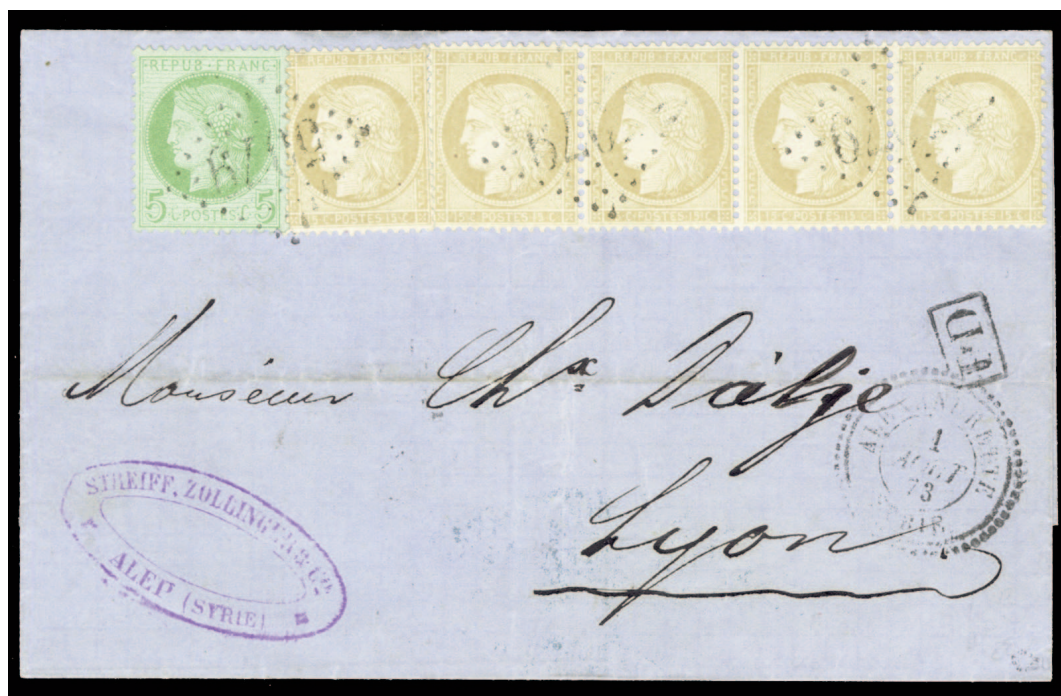 REPUB·FRANC·
5 C·POSTES·15 5
REPUB·FRANC·
15 C·POSTES·15 C
REPUB·FRANC·
15 C·POSTES·15 C
REPUB·FRANC·
15 C·POSTES·15 C
REPUB·FRANC·
15 C·POSTES·15 C
REPUB·FRANC·
15 C·POSTES·15 C
P.D.
Monsieur Chs
Lyon
ALEXANDRETTE
1
AOUT
73
STREIFF, ZOLLINGER & Co.
ALEP (SYRIE)